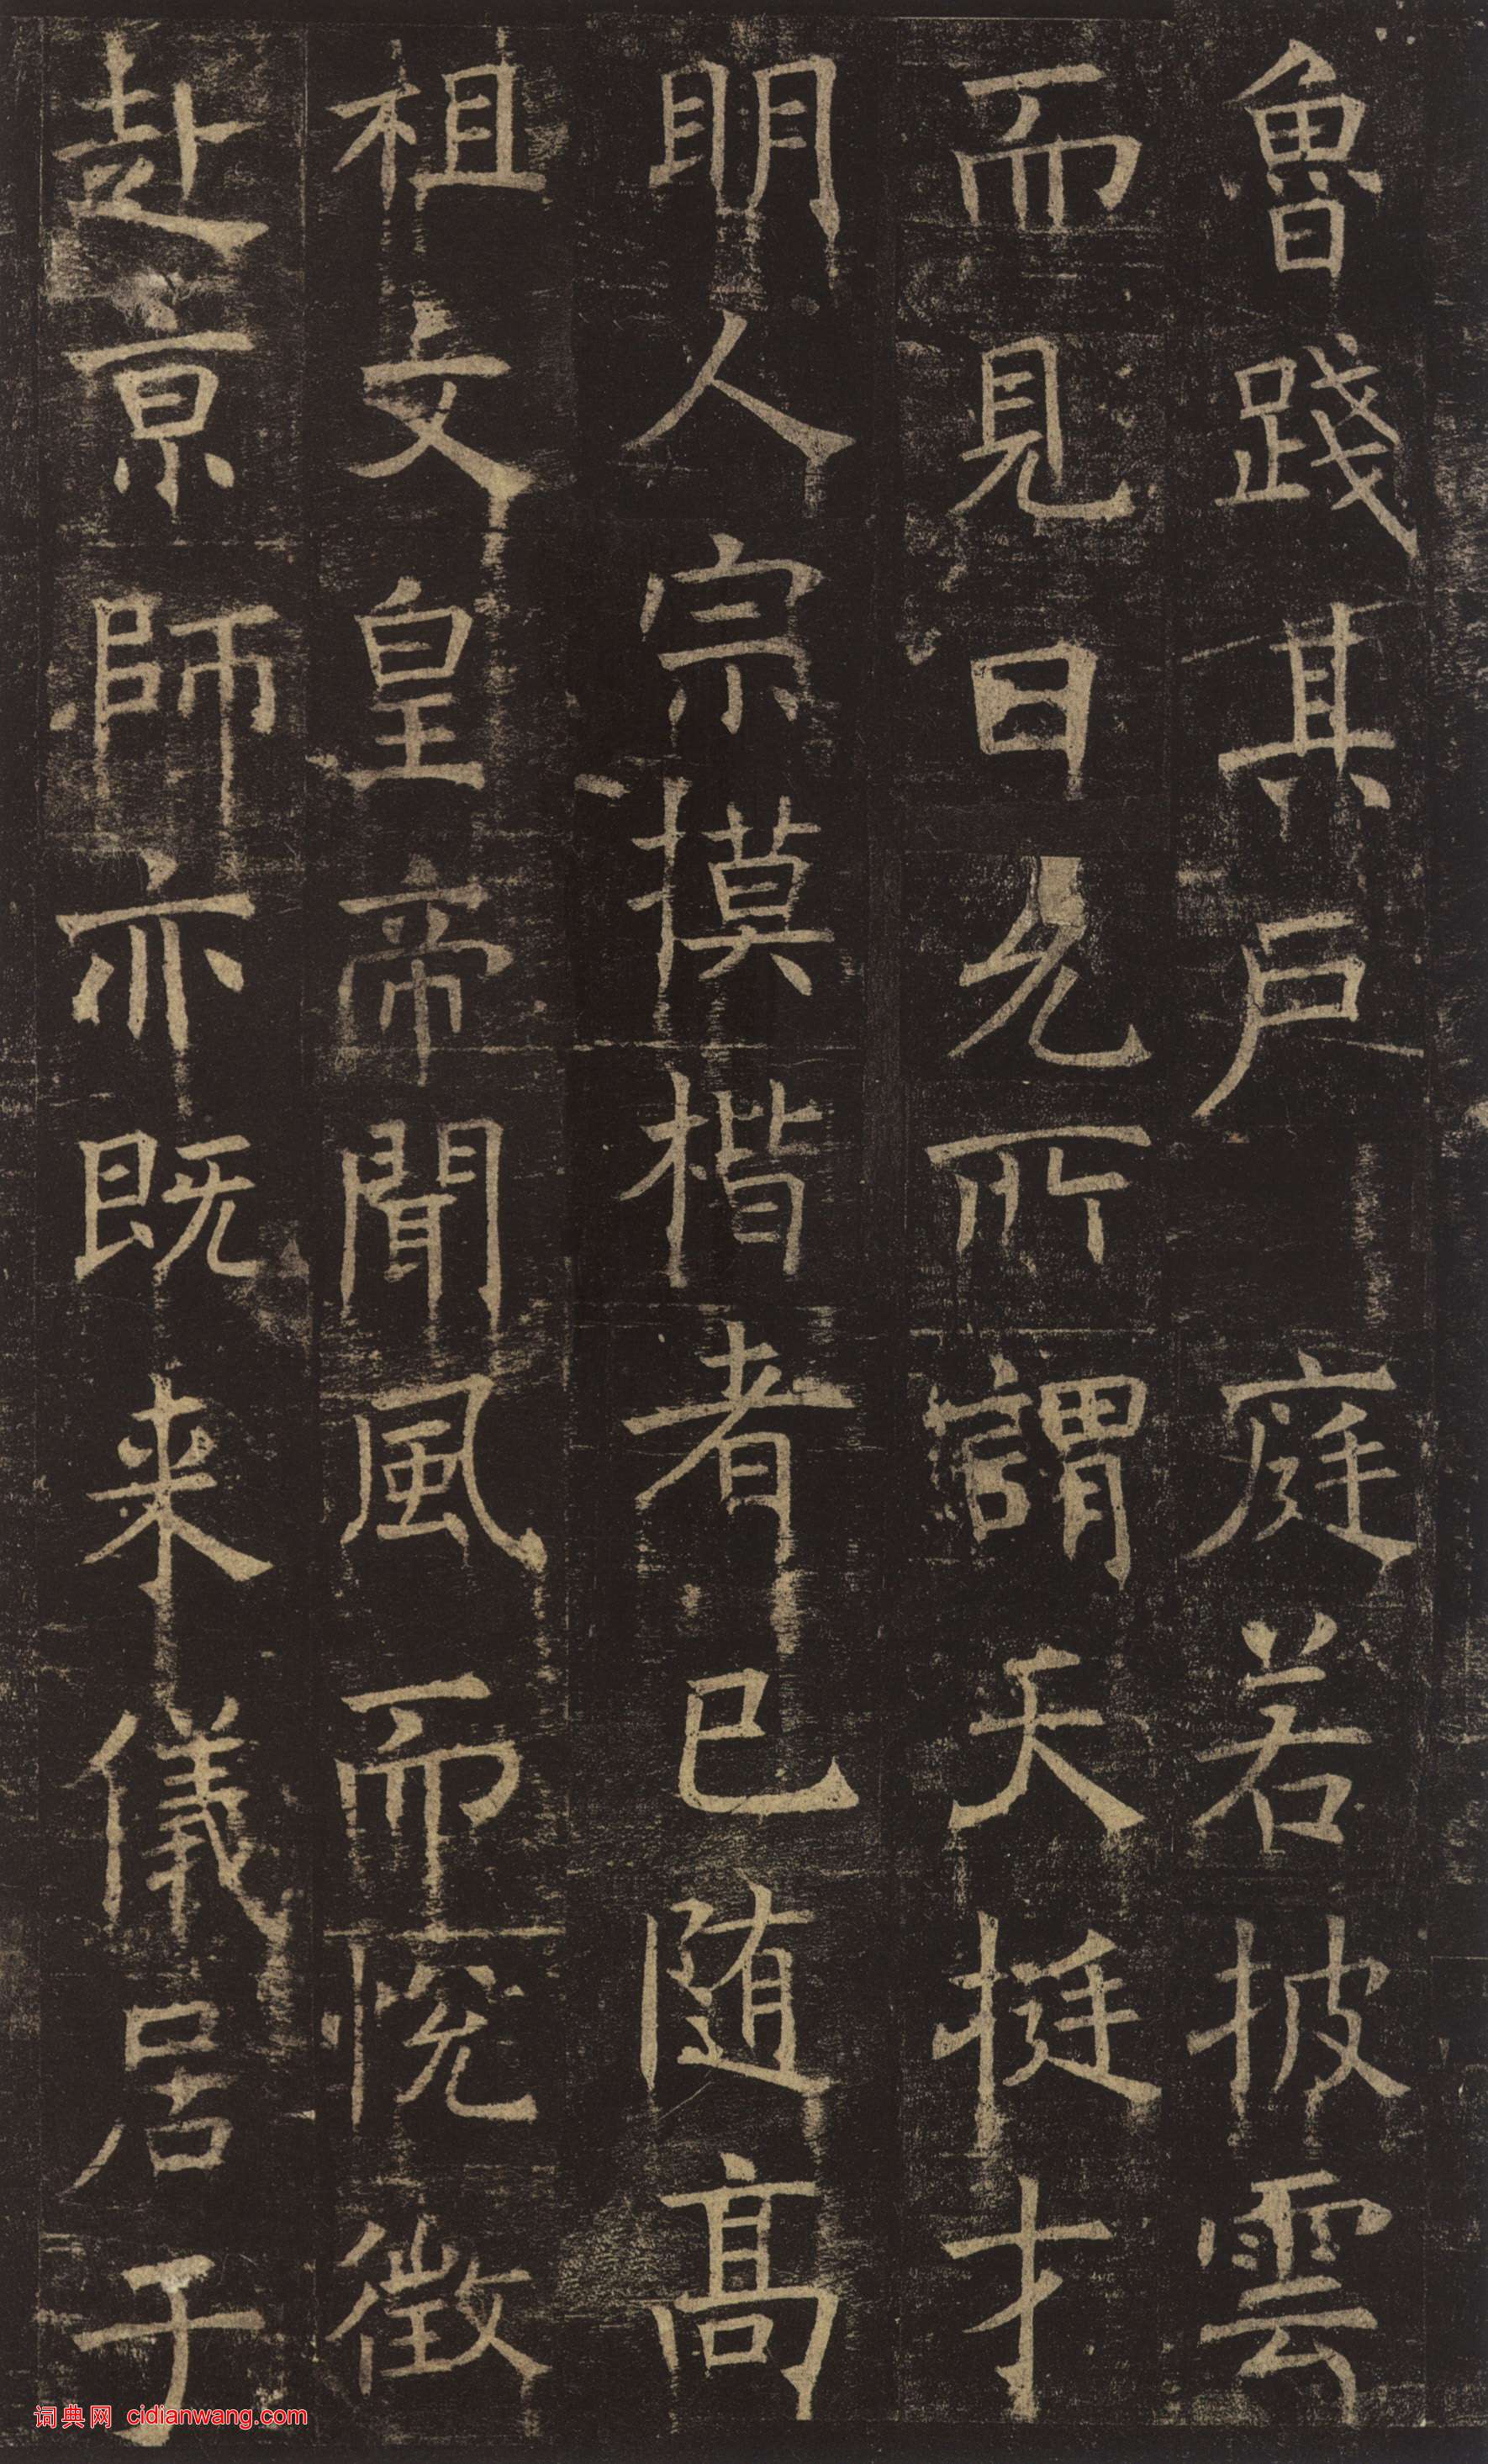 魯踐其戶庭若披雲
而見日見所謂天挺才
明人宗摸楷者已随高
祖文皇帝聞風而悅徵
赴京師亦既来儀居于
词典网 cidianwang.com